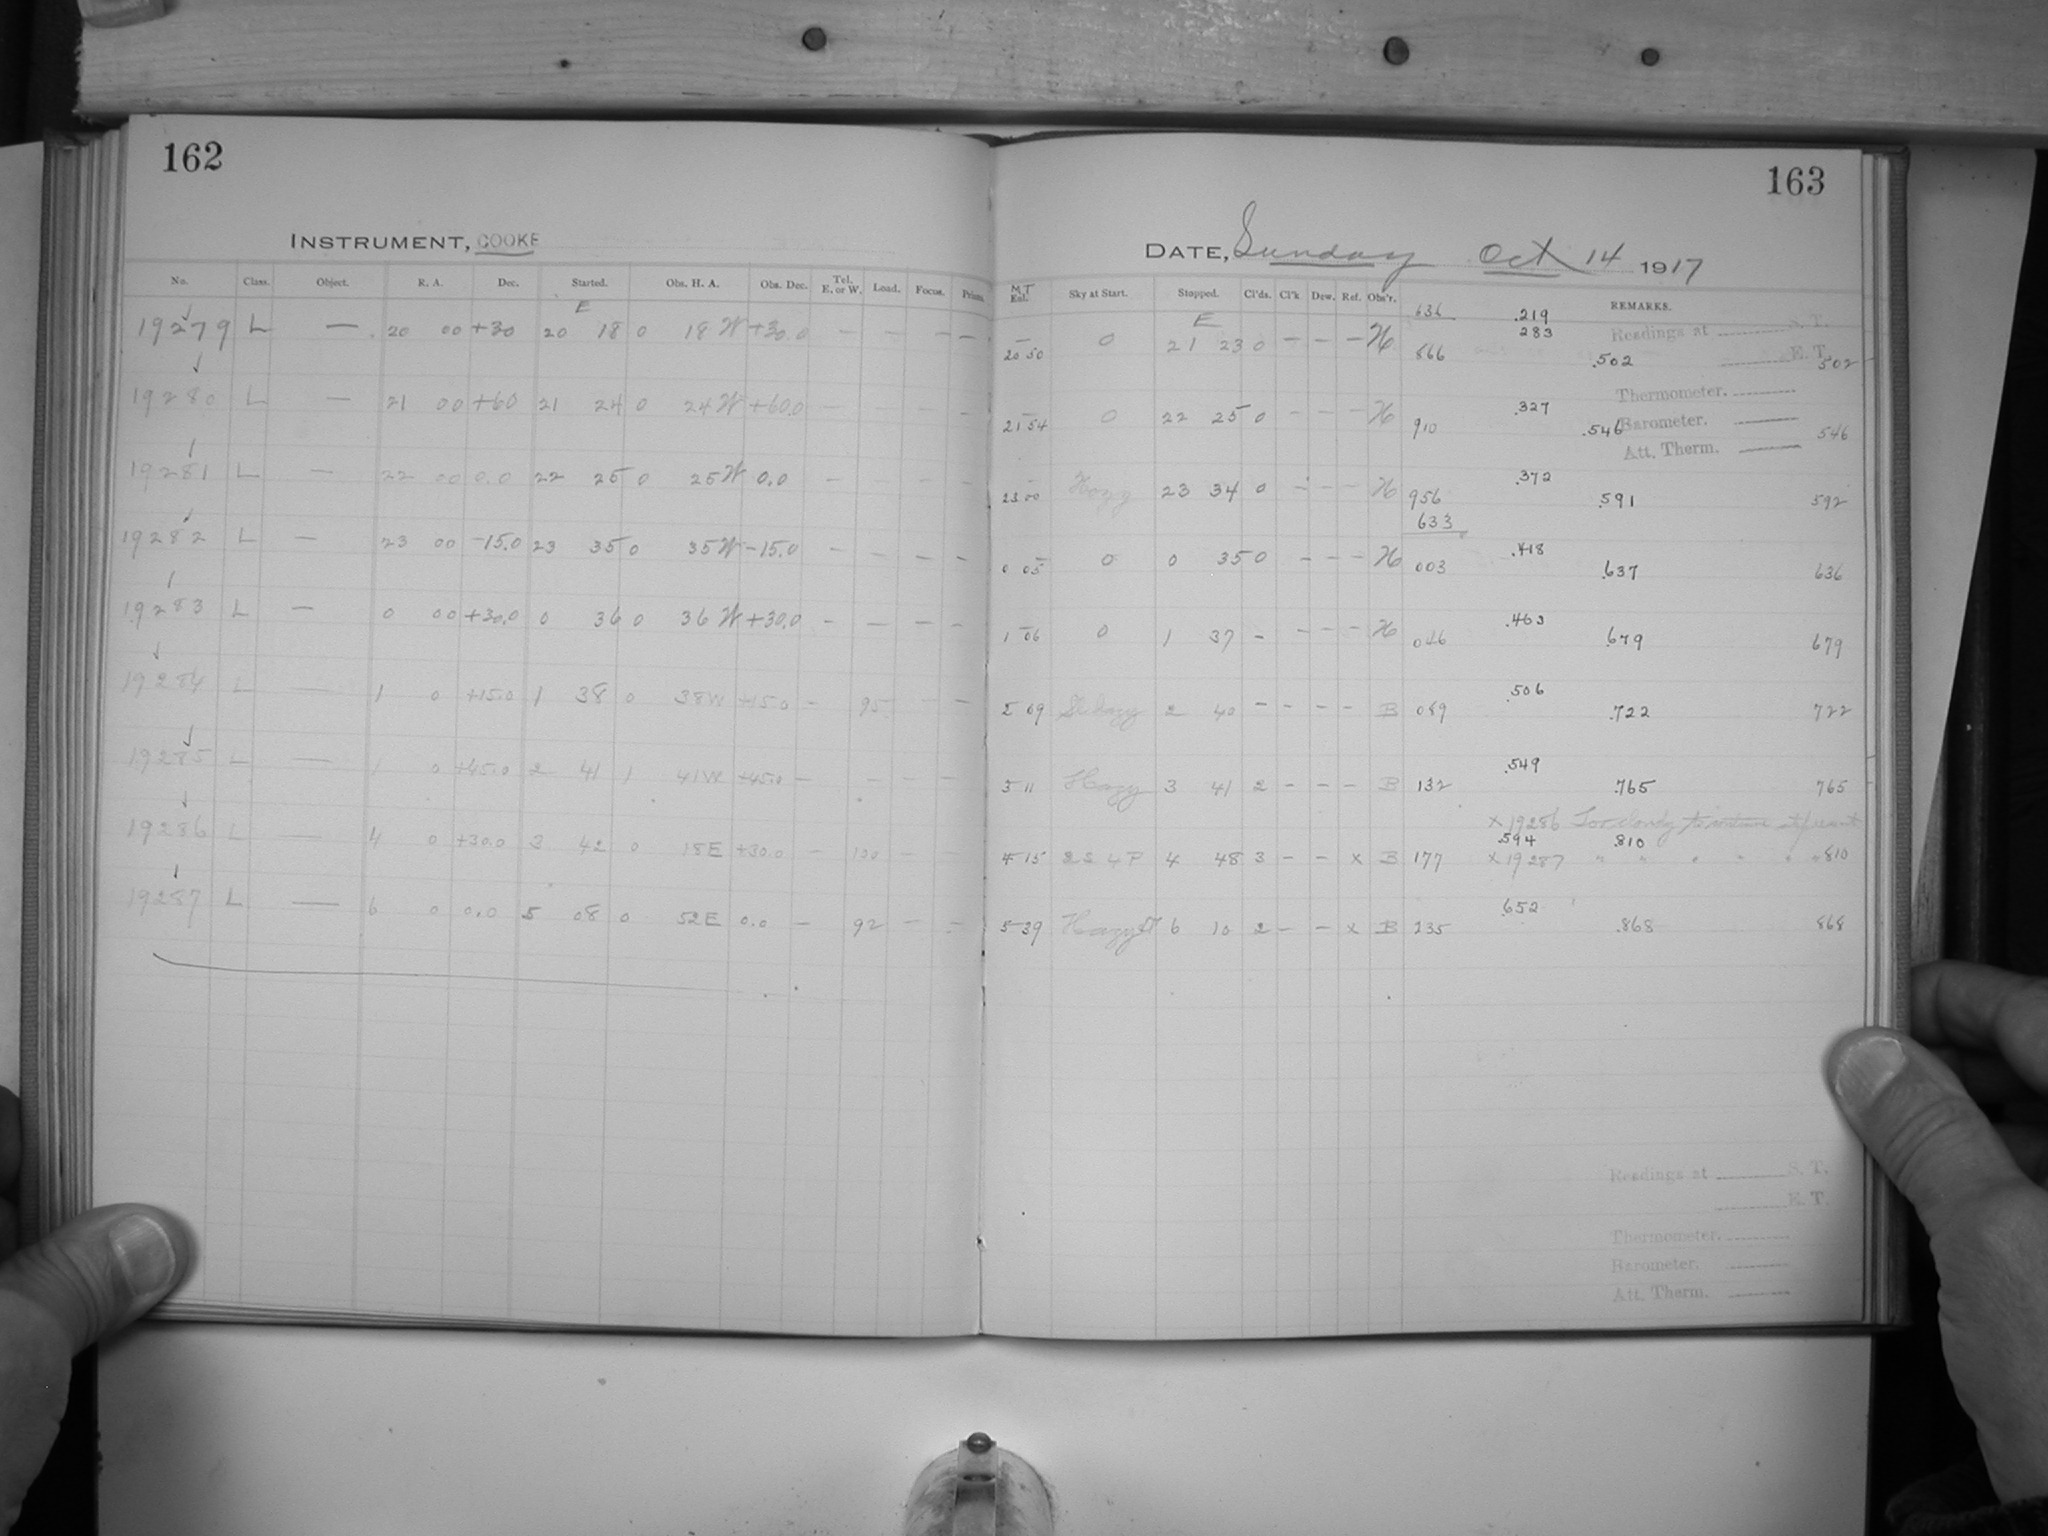 162
INSTRUMENT, COOKE
No. Class. Object. R. A. Dec. Started. Obs. H. A. Obs. Dec. Tel. E. or W. Load. Focus. Prism.
E
19279 L — 20 00 +30 20 18 0 18 W +30.0 — — — —
19280 L — 21 00 +60 21 24 0 24 W +60.0 — — — —
19281 L — 22 00 0.0 22 25 0 25 W 0.0 — — —
19282 L — 23 00 -15.0 23 35 0 35 W -15.0 — — — —
19283 L — 0 00 +30.0 0 36 0 36 W +30.0 — — — —
19284 L — 1 0 +15.0 1 38 0 38 W +15.0 — 95 — —
19285 L — 1 0 +45.0 2 41 1 41 W +45.0 — — — —
19286 L — 4 0 +30.0 3 42 0 18 E +30.0 — 100 — —
19287 L — 6 0 0.0 5 08 0 52 E 0.0 — 92 — —
163
DATE, Sunday Oct 14 1917
MT
Ent. Sky at Start. Stopped. Cl'ds. Cl'k Dew. Ref. Obs'r. REMARKS.
636 .219
E
Readings at S. T.
283
20 50 0 21 23 0 — — — H 866 .502 E. T. 502
Thermometer.
.327
21 54 0 22 25 0 — — — H 910 .546 Barometer. 546
Att. Therm.
.372
23 00 Hazy 23 34 0 — — — H 956 .591 592
633
.418
0 05 0 0 35 0 — — — H 003 .637 636
.463
1 06 0 1 37 — — — — H 046 .679 679
.506
2 09 Sl. hazy 2 40 — — — — B 089 .722 722
.549
3 11 Hazy 3 41 2 — — — B 132 .765 765
x 19286 Too cloudy to at present
.594 .810
4 15 2 S 4 P 4 48 3 — — x B 177 x 19287 " " " " " " 810
.652
5 39 Hazy 6 10 2 — — x B 235 .868 868
Readings at S. T.
E. T.
Thermometer.
Barometer.
Att. Therm.